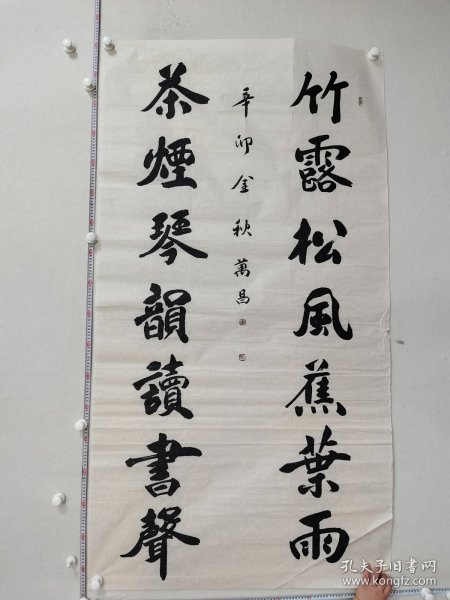 竹露松風蕉葉雨
茶煙琴韻讀書聲
辛卯金秋萬昌
孔夫子旧书网
www.kongfz.com